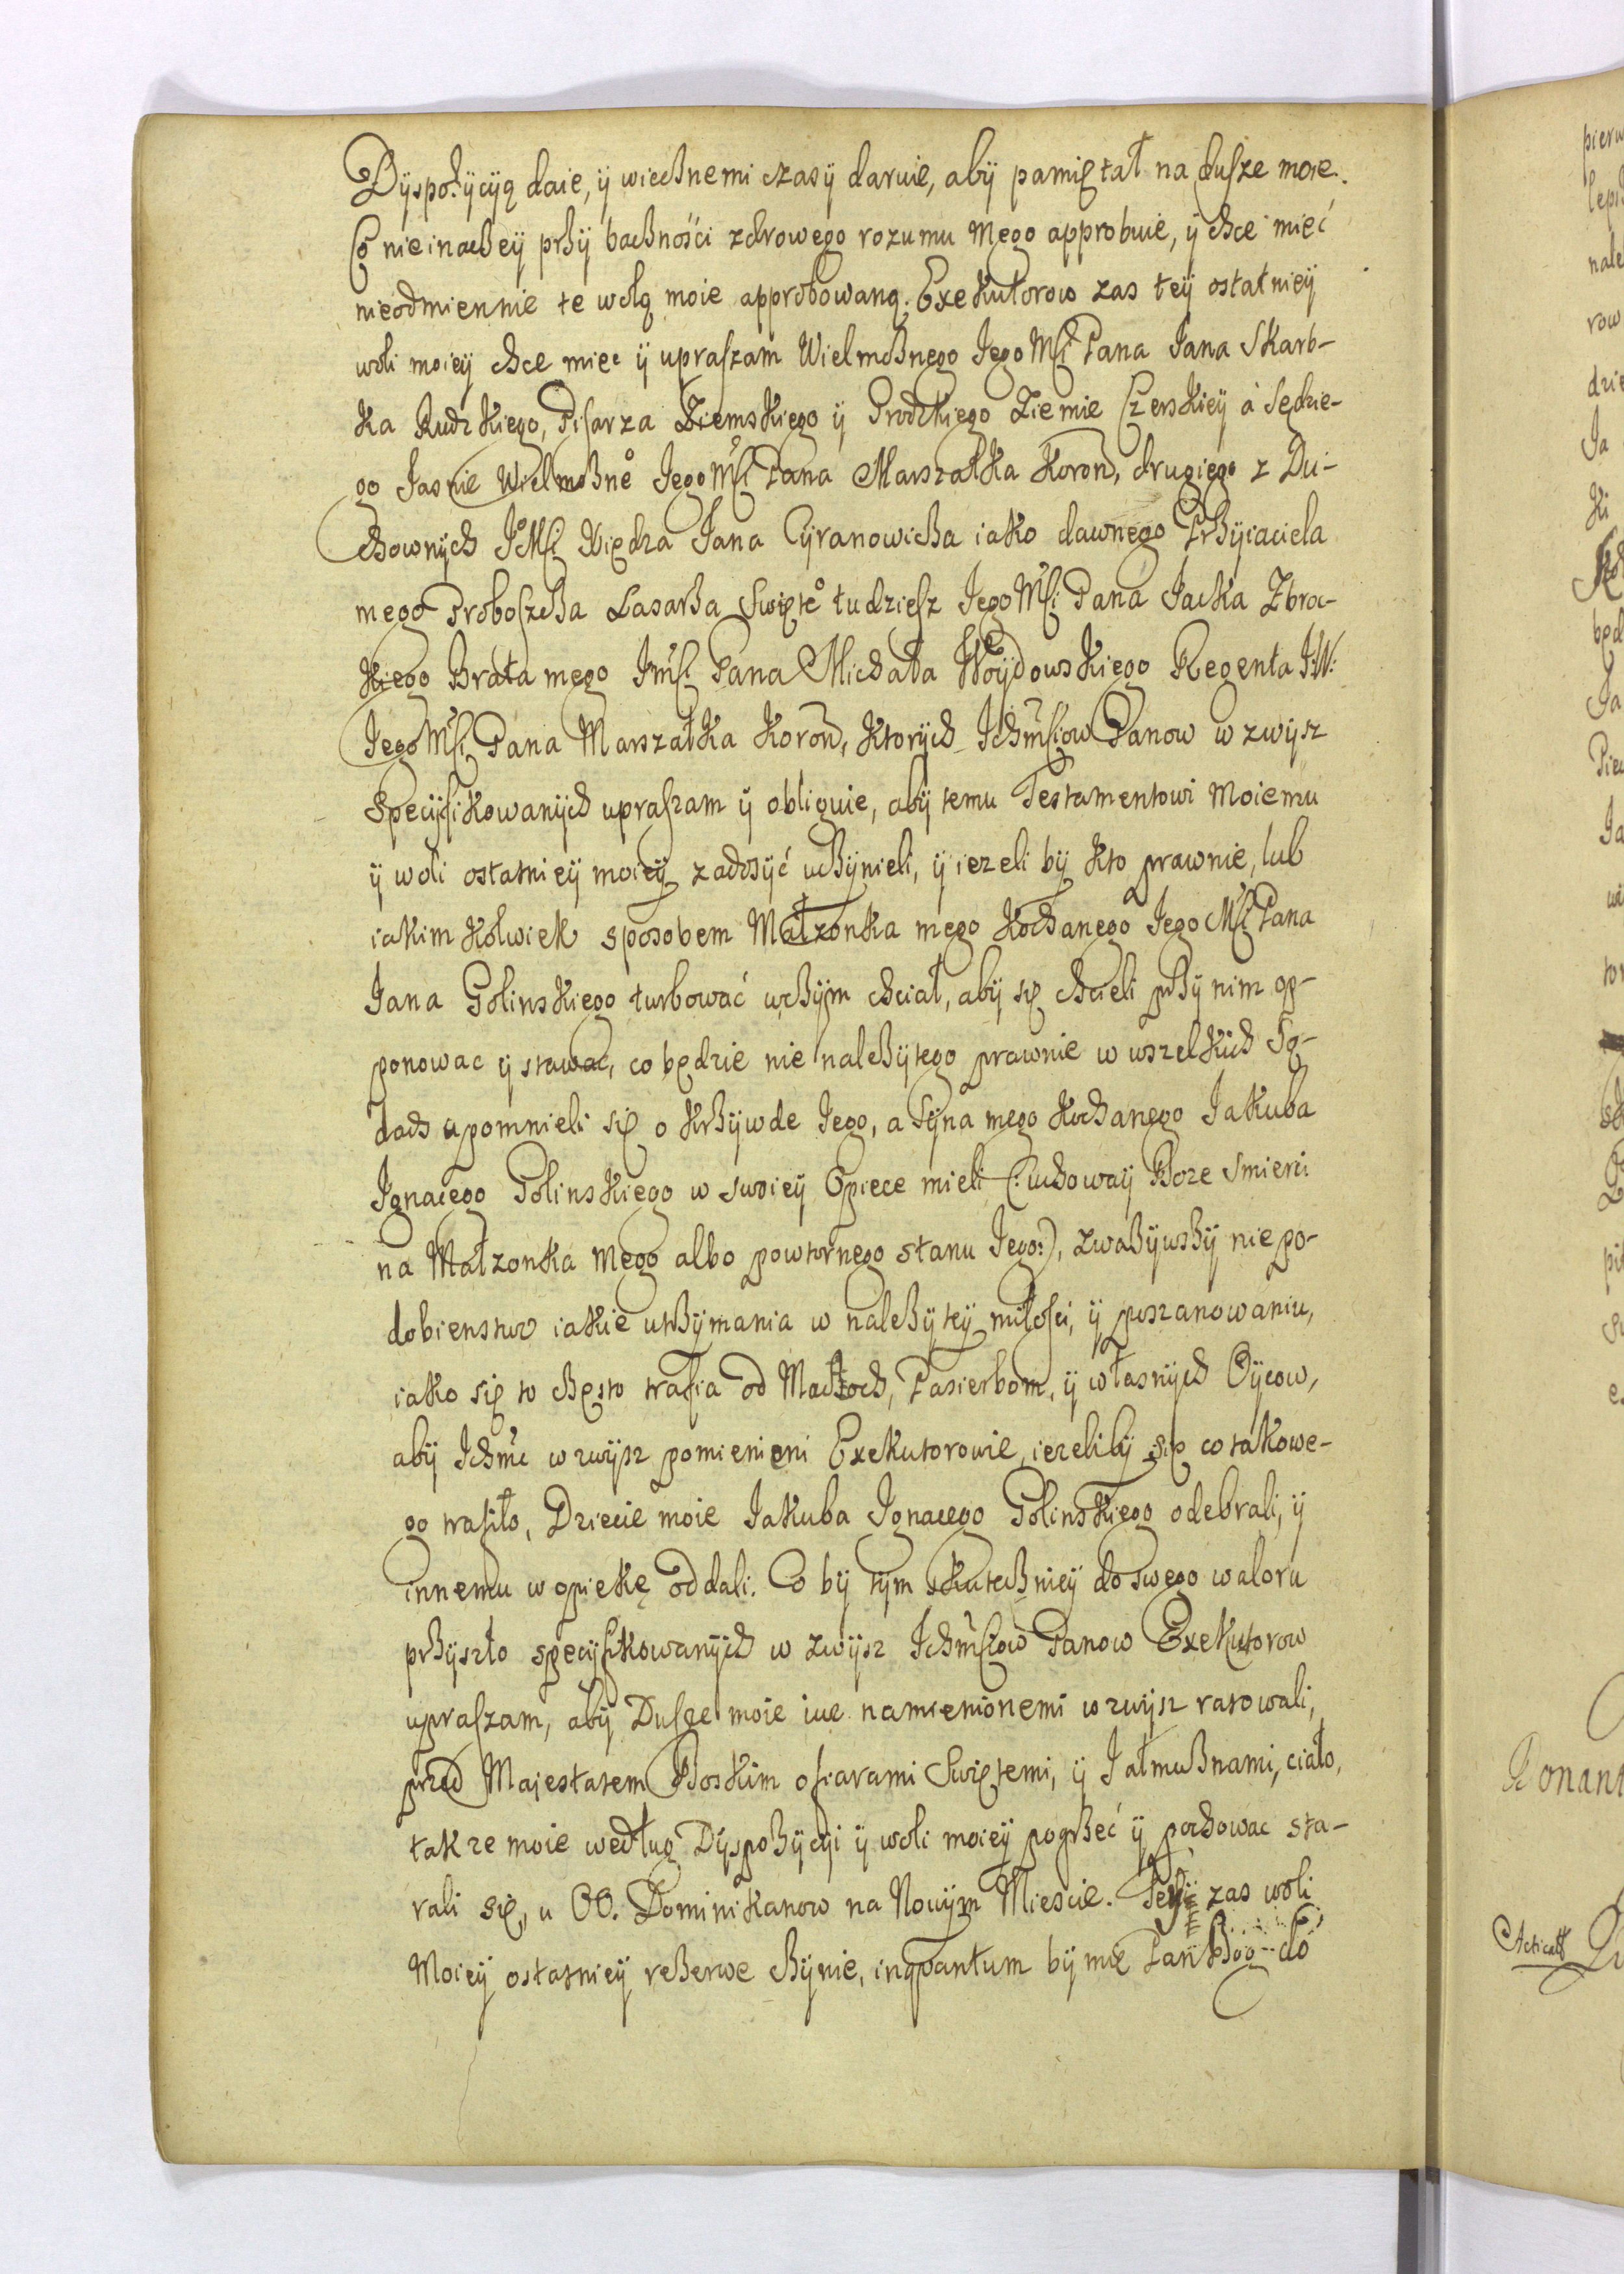 Dyspozycyą daie, ÿ wiecznemi czasÿ daruie, abÿ pamiętał na dusze moie.
Co nieinaczeÿ przÿ bacznośći zdrowego rozumu mego approbuie, ÿ chce mieć
nieodmiennie te wolą moie approbowaną. Exekutorow zas teÿ ostatnieÿ
woli moieÿ chce miec ÿ upraszam Wielmożnego Jego Mści Pana Jana Skarb-
ka Rudzkiego, Pisarza Ziemskiego ÿ Grodzkiego Ziemie Czerskieÿ à Sędzie-
go Jasnie Wielmożnego Jego Mści Pana Marszałka Koron, drugiego z Du-
chownÿch JMści Xiędza Jana Cÿranowicza iako dawnego Przÿiaciela
mego Proboszcza Łasarza Swięto tudziesz Jego Mści Pana Jacka Zbroc-
kiego Brata mego Jmści Pana Michała Woÿdowskiego Regenta J:W:
Jego Mści Pana Marszałka Koron, ktorÿch Ichmściow Panow w zwÿsz
Specÿfikowanÿch upraszam ÿ obliguie, abÿ temu Testamentowi moiemu
ÿ woli ostatnieÿ moieÿ zadosÿć uczÿnieli, ÿ iezeli bÿ kto prawnie, lub
iakim kolwiek sposobem Małzonka mego kochanego Jego Mści Pana
Jana Golinskiego turbować w czÿm chciał, abÿ się chcieli przÿ nim op-
ponowac ÿ stawac, co będzie nie należÿtego prawnie w wszelkich Są-
dach upomnieli się o krzÿwde Jego, a Sÿna mego kochanego Jakuba
Ignacego Golinskiego w swoieÿ Opiece mieli (:uchowaÿ Boze smierci
na Małzonka mego albo powtornego stanu Jego:), zwazÿwszÿ nie po-
dobienstwo iakie utrzÿmania w nalezÿteÿ miłosci, ÿ poszanowaniu,
iako się to często trafia od Macoch, Pasierbom, ÿ własnÿch Oÿcow,
abÿ Ichmć w zwÿsz pomienieni Exekutorowie, iezelibÿ się co takowe-
go trafiło, Dziecie moie Jakuba Ignacego Golinskiego odebrali, ÿ
innemu w opiekę oddali. Co bÿ tÿm skutecznieÿ do swego waloru
przÿszło specÿfikowanÿch w zwÿsz Ichmściow Panow Exekutorow
upraszam, abÿ Dusze moie iuz namienionemi w zwÿsz ratowali,
przed Majestatem Boskim ofiarami Swiętemi, ÿ Jałmużnami, ciało,
takze moie według Dÿspozÿcÿi ÿ woli moieÿ pogrzeć ÿ pochowac sta-
rali się, u OO. Dominikanow na Nowÿm Miescie. Teÿ zas woli
Moieÿ ostatnieÿ rezerwe czÿnie, inqvantum bÿ mie Pan Bog do